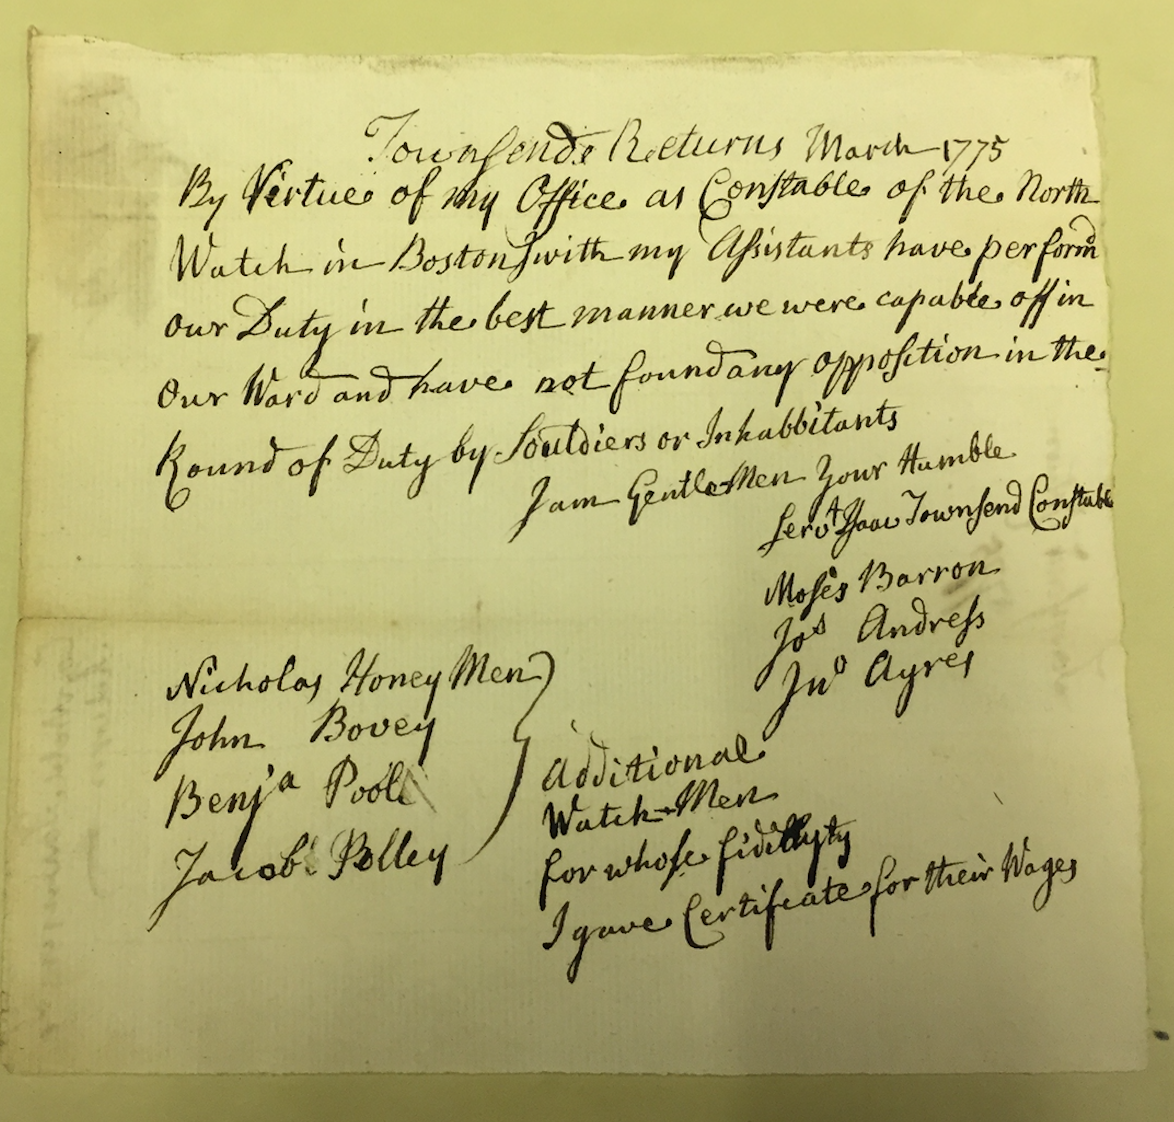 Townsends Returns March 1775
By Virtue of my Office as Constable of the North
Watch in Boston with my Assistants have performd
our Duty in the best manner we were capable off in
our Ward and have not found any opposition in the
Round of Duty by Souldiers or Inhabbitants
I am Gentle-Men Your Humble
Servt Isaac Townsend Constable
Moses Barron
Jos Andress
Jno Ayres
Nicholas HoneyMen
John Bovey
Benja Pool
Jacob Polley
Additional
Watch-Men
for whose fidillyty
I gave Certificate for their Wages